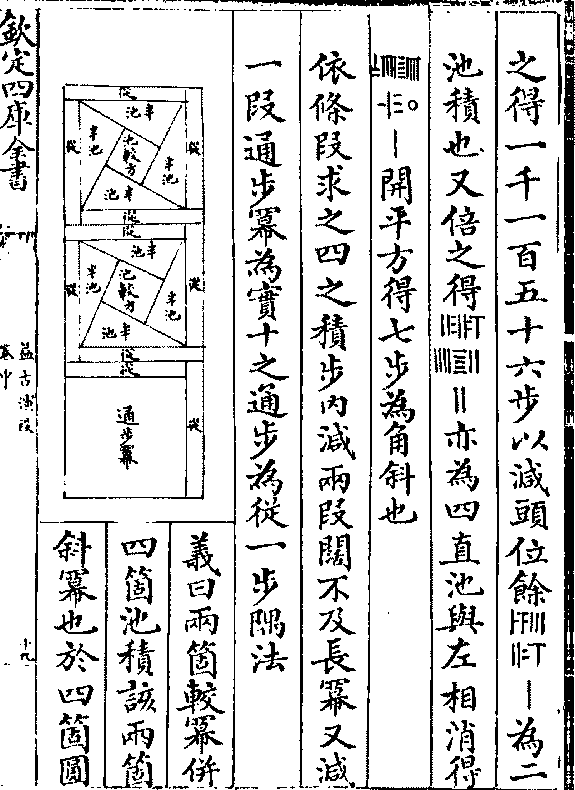 之得一千一百五十六步以減頭位餘為二
池積也又倍之得亦為四直池與左相消得
開平方得七步為角斜也
依條段求之四之積步內減兩段闊不及長冪又減
一段通步冪為實十之通步為從一步隅法
從
半池
從
半池
池較方
半池
從
半池
從
從
半池
從
半池
池較方
半池
從
半池
從
從
通步冪
從
義曰兩箇較冪併
四箇池積該兩箇
斜冪也於四箇圓
欽定四庫全書
益古演段
卷中
十九